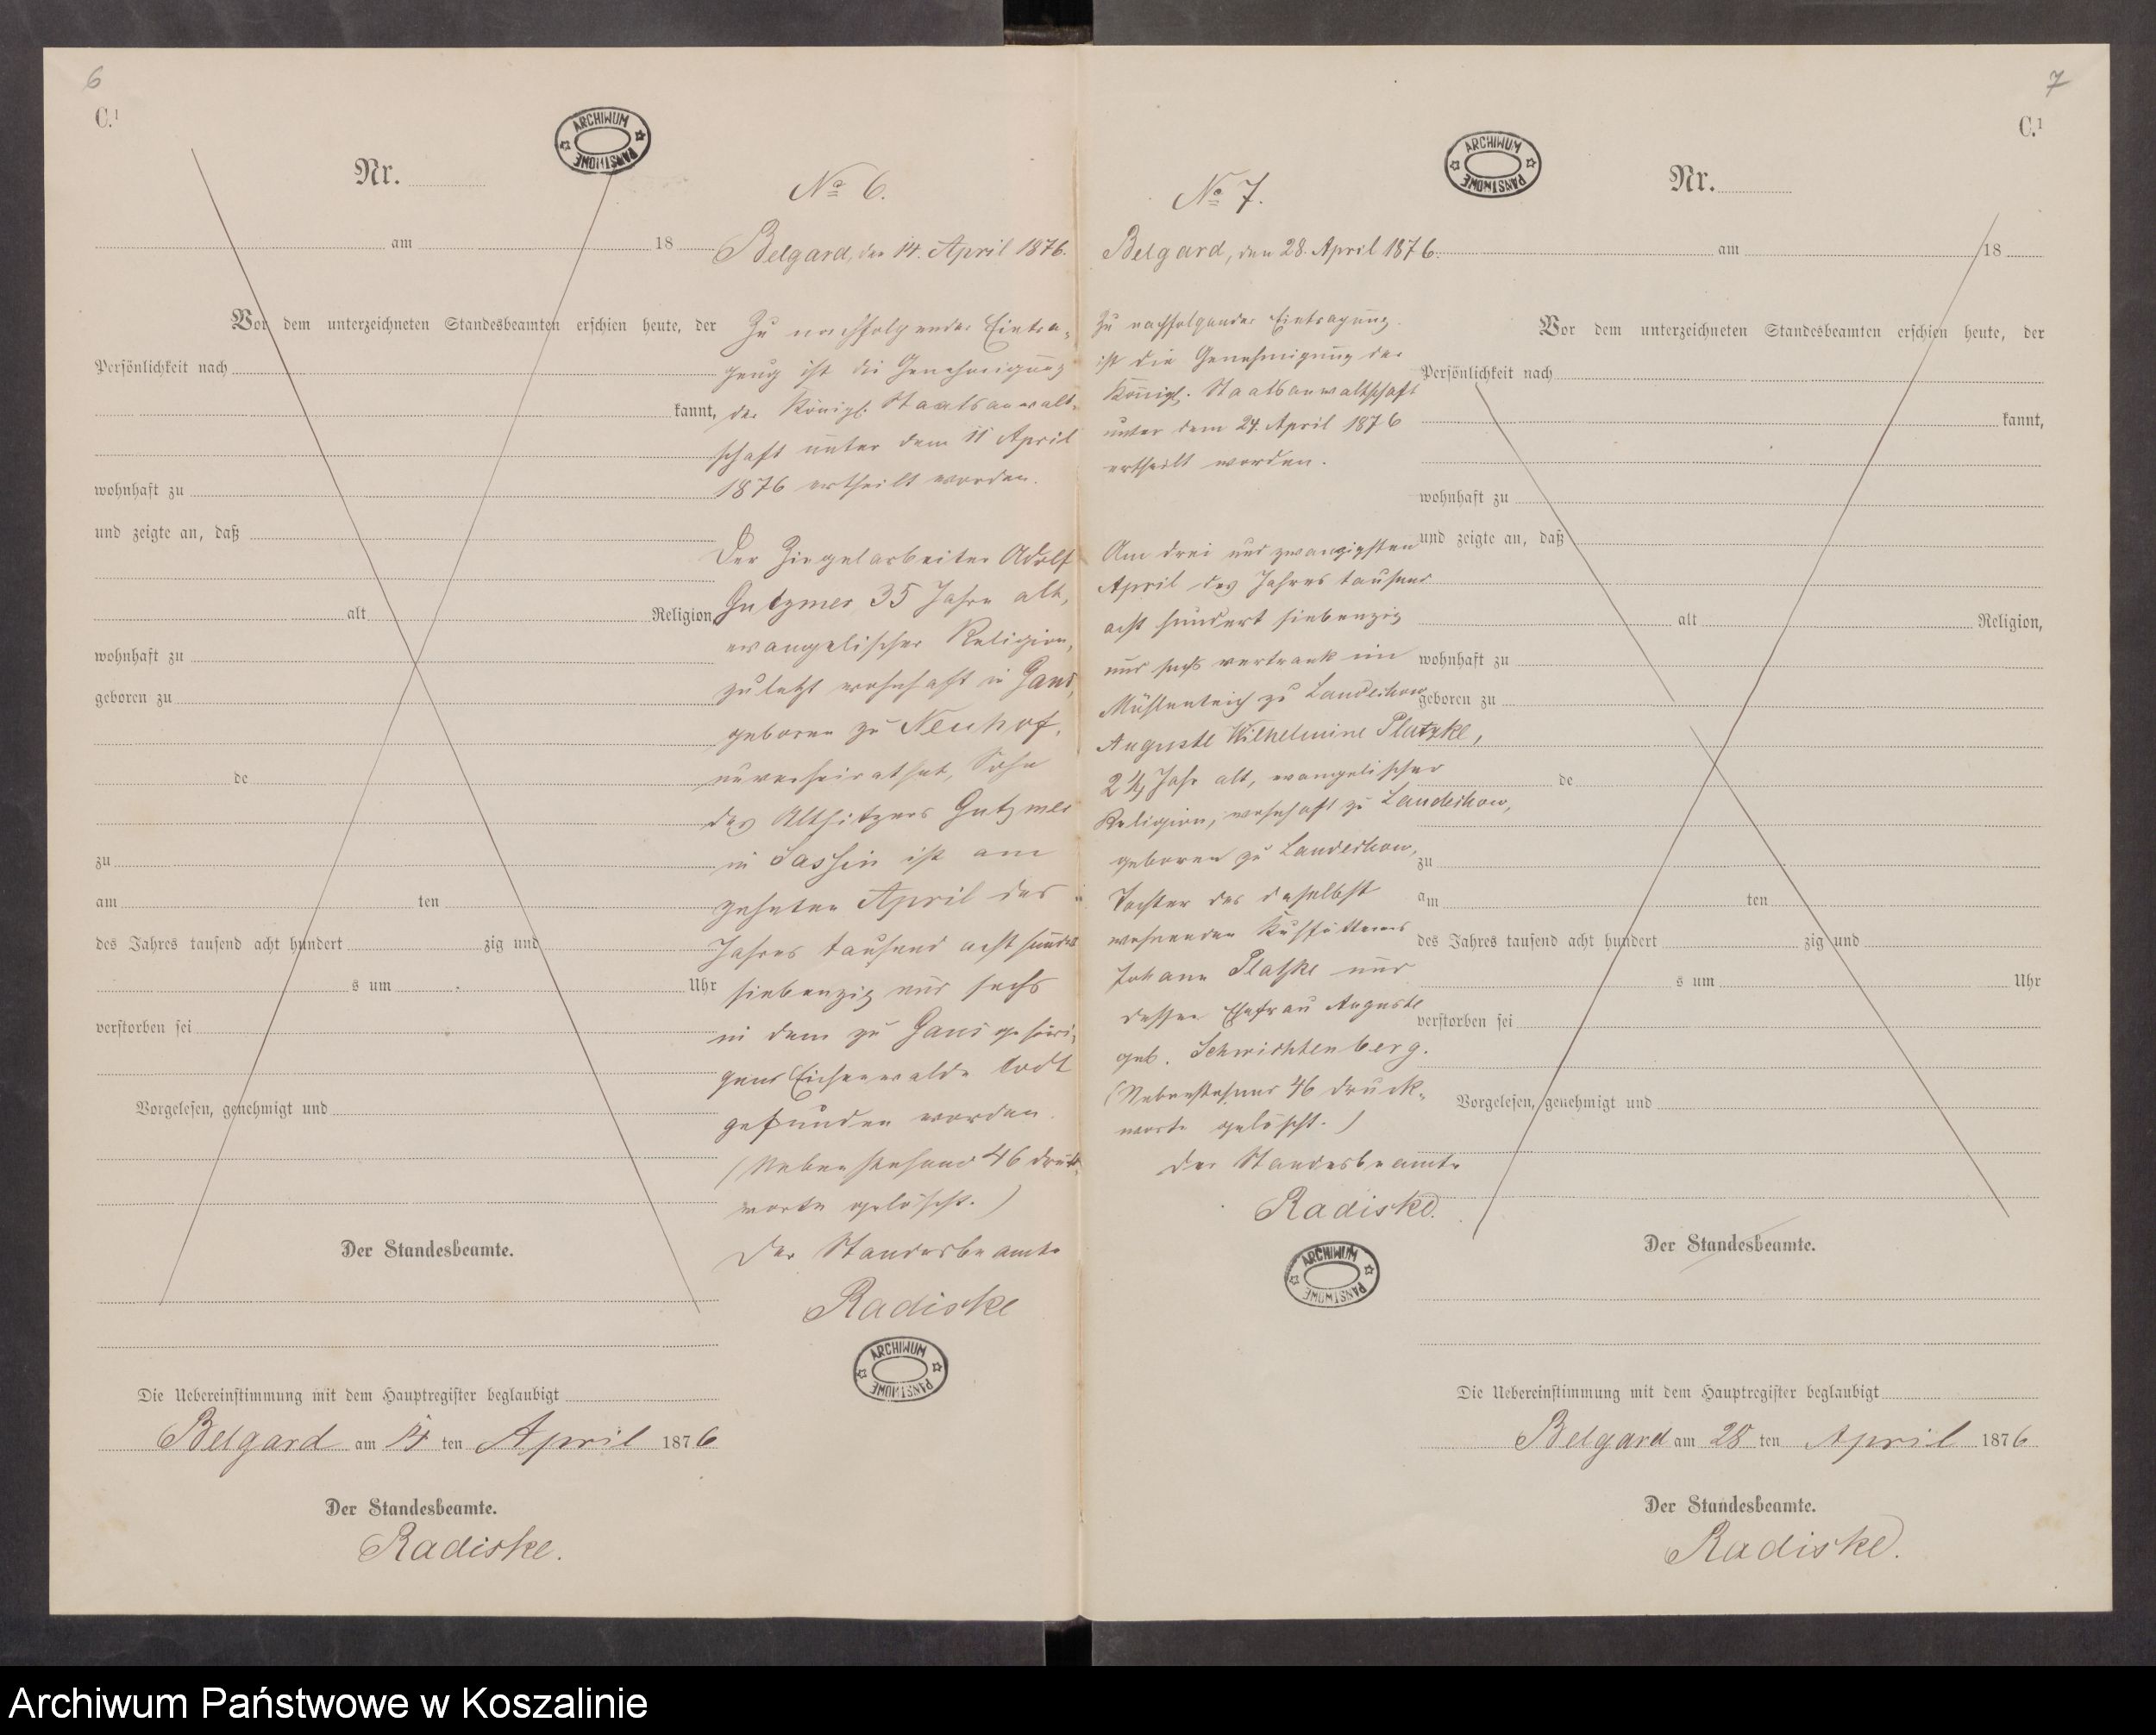 6
C.1
ARCHIWUM PAŃSTWOWE
Nr.
No 6.
am 18
Belgard, den 14. April 1876.
Vor dem unterzeichneten Standesbeamten erschien heute, der
Persönlichkeit nach
kannt,
wohnhaft zu
und zeigte an, daß
alt Religion
wohnhaft zu
geboren zu
de
zu
am ten
des Jahres tausend acht hundert zig und
s um Uhr
verstorben sei
Vorgelesen, genehmigt und
Der Standesbeamte.
Zu nachfolgender Eintra-
gung ist die Genehmigung
der Königl. Staatsanwalt-
schaft unter dem 11 April
1876 ertheilt worden.
Der Ziegelarbeiter Adolf
Gutzmer, 35 Jahre alt,
evangelischer Religion,
zuletzt wohnhaft in Gans,
geboren zu Neuhof,
unverheirathet, Sohn
des Altsitzers Gutzmer
in Sassin ist am
zehnten April des
Jahres tausend acht hundert
siebenzig und sechs
in dem zu Gans gehöri-
gen Eichenwalde todt
gefunden worden.
(Nebenstehend 46 Druck-
worte gelöscht.)
Der Standesbeamte
Radiske
ARCHIWUM PAŃSTWOWE
Die Uebereinstimmung mit dem Hauptregister beglaubigt
Belgard am 14 ten April 1876
Der Standesbeamte.
Radiske.
7
C.1
ARCHIWUM PAŃSTWOWE
No 7.
Nr.
Belgard, den 28. April 1876.
am 18
Zu nachfolgender Eintragung
ist die Genehmigung der
Königl. Staatsanwaltschaft
unter dem 24. April 1876
ertheilt worden.
Am drei und zwanzigsten
April des Jahres tausend
acht hundert siebenzig
und sechs ertrank im
Mühlenteich zu Landechow
Auguste Wilhelmine Platzke,
2 1/4 Jahr alt, evangelischer
Religion, wohnhaft zu Landechow,
geboren zu Landechow,
Tochter des daselbst
wohnenden Kuhfütterers
Johann Platzke und
dessen Ehefrau Auguste
geb. Schwichtenberg.
(Nebenstehend 46 Druck-
worte gelöscht.)
Der Standesbeamte
Radiske.
ARCHIWUM PAŃSTWOWE
Vor dem unterzeichneten Standesbeamten erschien heute, der
Persönlichkeit nach
kannt,
wohnhaft zu
und zeigte an, daß
alt Religion,
wohnhaft zu
geboren zu
de
zu
am ten
des Jahres tausend acht hundert zig und
s um Uhr
verstorben sei
Vorgelesen, genehmigt und
Der Standesbeamte.
Die Uebereinstimmung mit dem Hauptregister beglaubigt
Belgard am 28 ten April 1876
Der Standesbeamte.
Radiske.
Archiwum Państwowe w Koszalinie